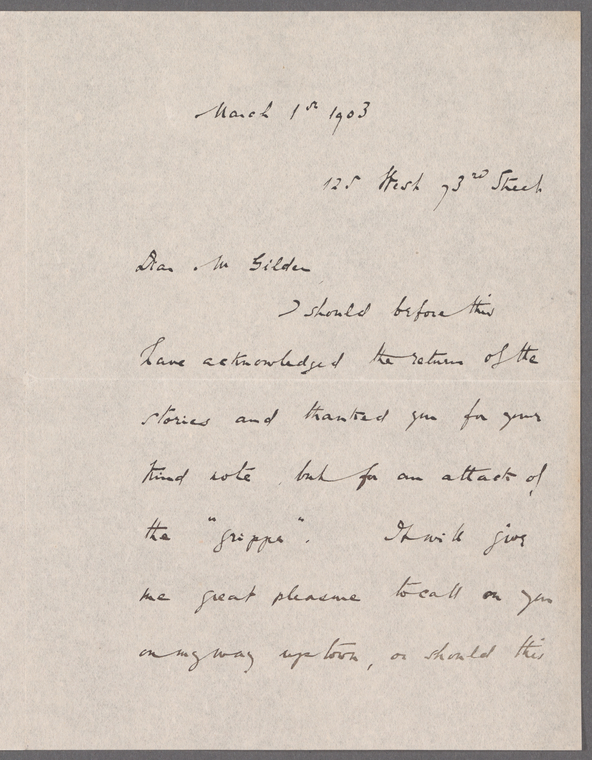 March 1st 1903
125 West 73rd Street
Dear Mr Gilder
I should before this
have acknowledged the return of the
stories and thanked you for your
kind note, but for an attack of
the "grippe". It will give
me great pleasure to call on you
on my way uptown, or should this